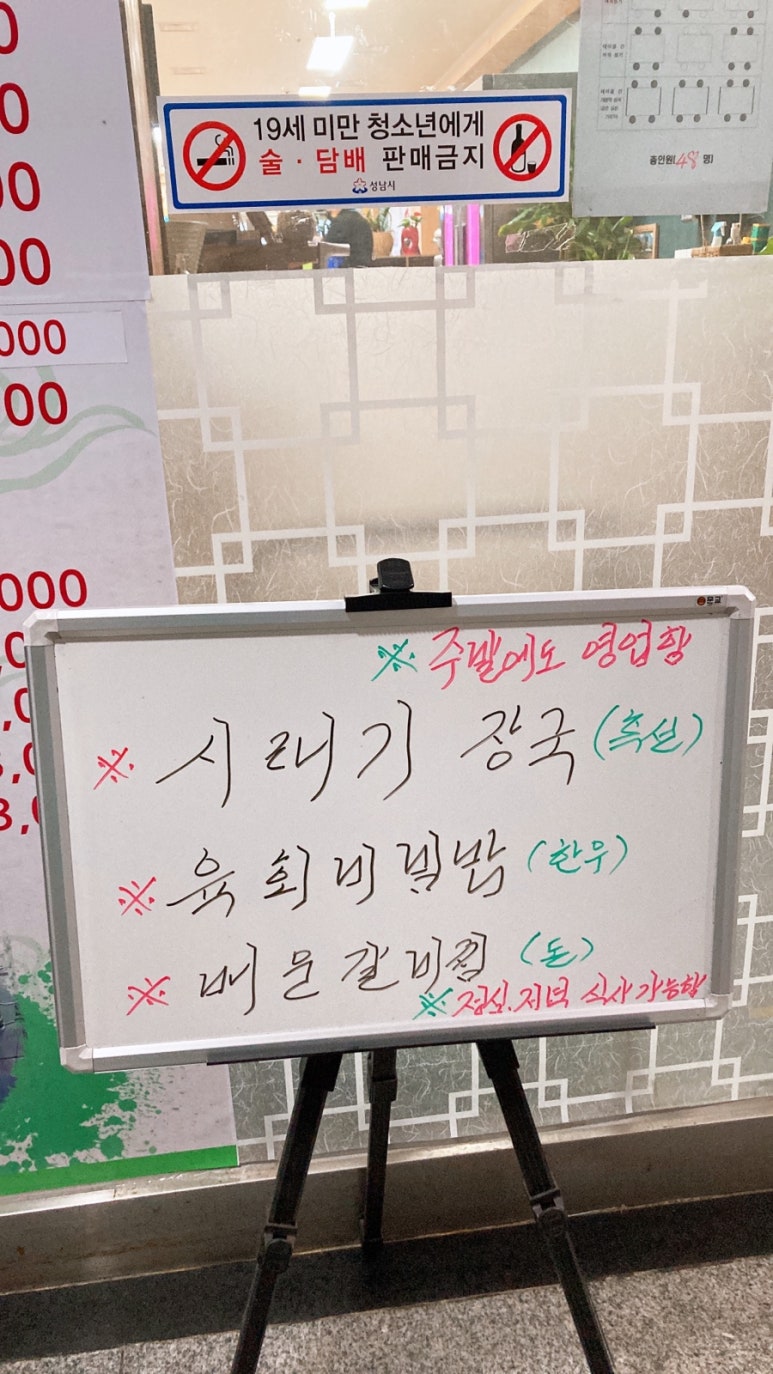 19세 미만 청소년에게
술·담배 판매금지
성남시
총인원(48 명)
0
0
00
00
000
00
000
문교
※ 주말에도 영업함
※ 시래기 장국 (특선)
※ 육회비빔밥 (한우)
※ 매운갈비찜 (돈)
※ 점심.저녁 식사가능함